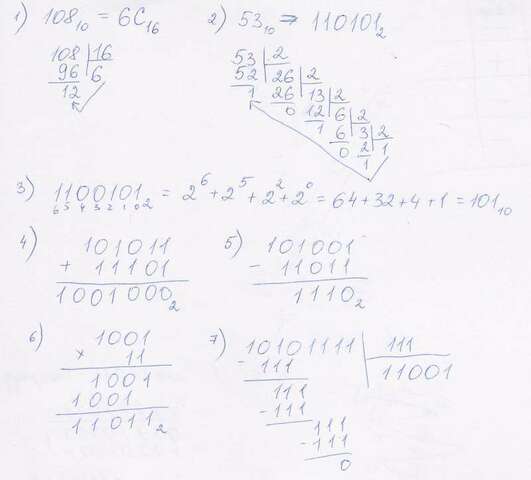 1) 108₁₀ = 6C₁₆
108 | 16
96 | 6
12
2) 53₁₀ ⇒ 110101₂
53 | 2
52 | 26 | 2
1 | 26 | 13 | 2
0 | 12 | 6 | 2
1 | 6 | 3 | 2
0 | 2 | 1
1
3) 1100101₂ = 2⁶ + 2⁵ + 2² + 2⁰ = 64 + 32 + 4 + 1 = 101₁₀
6 5 4 3 2 1 0
4) 101011
+ 11101
1001000₂
5) 101001
- 11011
1110₂
6) 1001
× 11
1001
1001
11011₂
7) 10101111 | 111
- 111 | 11001
111
- 111
111
- 111
0